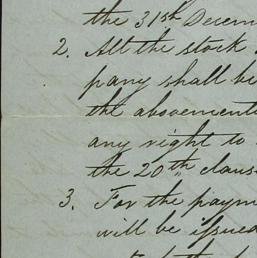 the 31st Decem
2. All the stock
pany shall be
the abovementi
any right to
the 20th claus
3. For the paym
will be issued